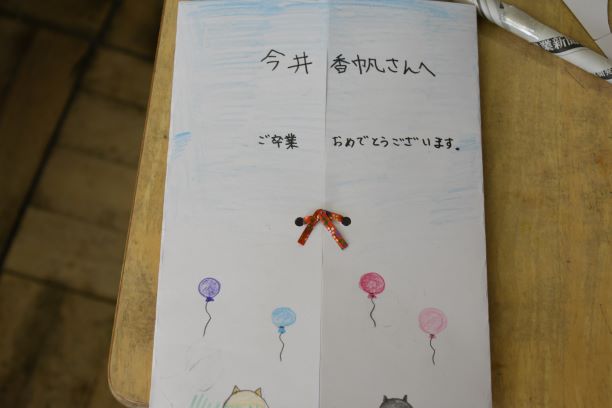 今井 香帆さんへ
ご卒業 おめでとうございます。